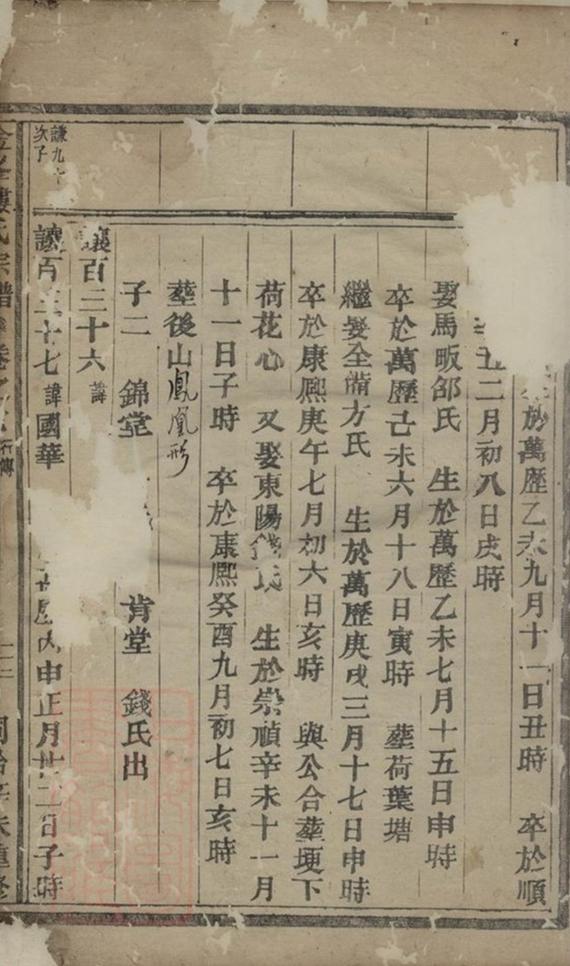 於萬歷乙未九月十一日丑時 卒於順
丑二月初八日戌時
娶馬畈邵氏 生於萬歷乙未七月十五日申時
卒於萬歷己未六月十八日寅時 塟荷葉塘
繼娶全備方氏 生於萬歷庚戌三月十七日申時
卒於康熈庚午七月初六日亥時 與公合塟埂下
荷花心 又娶東陽錢氏 生於崇禎辛未十一月
十一日子時 卒於康熈癸酉九月初七日亥時
塟後山鳳凰形
子二 錦堂 肯堂 錢氏出
讓百三十六 諱
謙九十
次子
讓百三十七 諱國華 申正月廿二日子時
氏宗譜